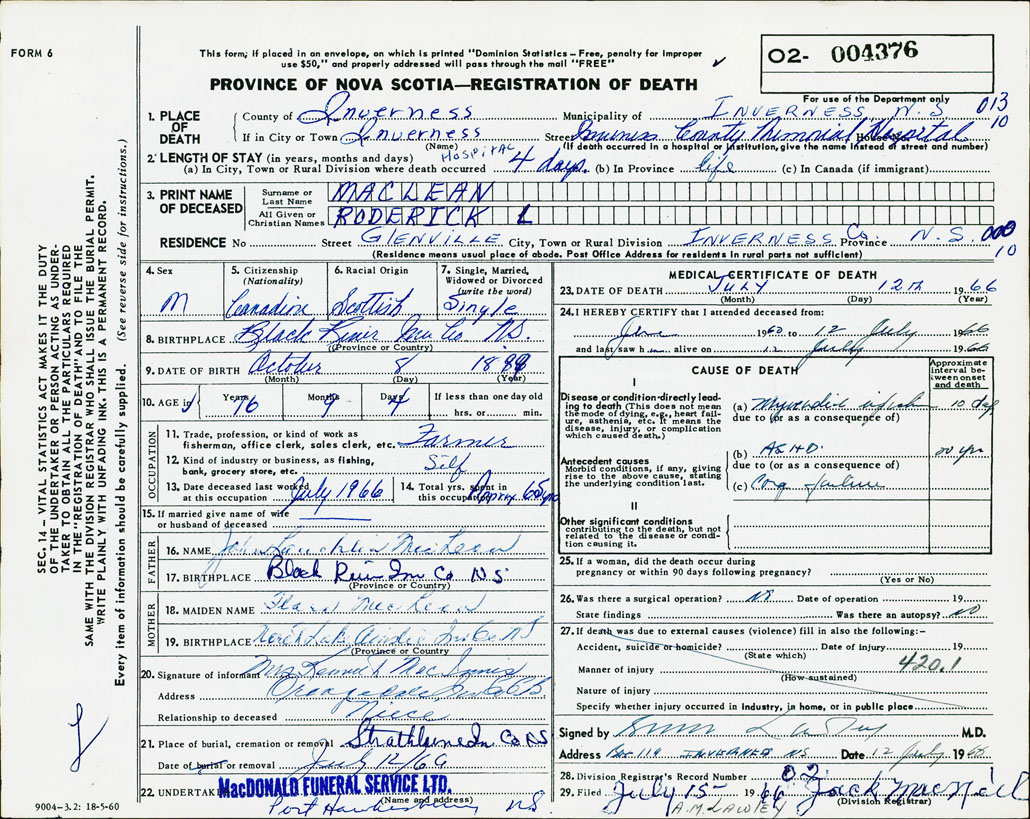 FORM 6
This form, if placed in an envelope, on which is printed "Dominion Statistics – Free, penalty for improper
use $50," and properly addressed will pass through the mail "FREE"
02- 004376
PROVINCE OF NOVA SCOTIA—REGISTRATION OF DEATH
For use of the Department only
013
10
1. PLACE OF DEATH
County of Inverness Municipality of INVERNESS N.S
If in City or Town Inverness Street Inverness County Memorial Hospital
(Name) (If death occurred in a hospital or institution, give the name instead of street and number)
2. LENGTH OF STAY (in years, months and days) HOSPITAL
(a) In City, Town or Rural Division where death occurred 4 days. (b) In Province life (c) In Canada (if immigrant)
3. PRINT NAME OF DECEASED
Surname or Last Name MACLEAN
All Given or Christian Names RODERICK L
RESIDENCE No Street GLENVILLE City, Town or Rural Division INVERNESS Co. Province N.S. 000
10
(Residence means usual place of abode. Post Office Address for residents in rural parts not sufficient)
4. Sex
M
5. Citizenship (Nationality)
Canadian
6. Racial Origin
Scottish
7. Single, Married, Widowed or Divorced (write the word)
Single
8. BIRTHPLACE Black River Inv Co. N.S.
(Province or Country)
9. DATE OF BIRTH October 8 1889
(Month) (Day) (Year)
10. AGE in Years 76 Months 9 Days 4 If less than one day old
hrs. or min.
OCCUPATION
11. Trade, profession, or kind of work as
fisherman, office clerk, sales clerk, etc. Farmer
12. Kind of industry or business, as fishing,
bank, grocery store, etc. Self
13. Date deceased last worked
at this occupation July 1966
14. Total yrs. spent in
this occupation Approx 65 yrs
15. If married give name of wife
or husband of deceased
FATHER
16. NAME John Lauchlin MacLean
17. BIRTHPLACE Black River Inv Co NS
(Province or Country)
MOTHER
18. MAIDEN NAME Flora MacLean
19. BIRTHPLACE North Lake Ainslie Inv Co NS
(Province or Country)
20. Signature of informant Mrs Kenneth MacInnis
Address Orangedale
Relationship to deceased Niece
21. Place of burial, cremation or removal Strathlorne In Co NS
Date of burial or removal July 12/66
22. UNDERTAKER MacDONALD FUNERAL SERVICE LTD.
(Name and address)
Port Hawkesbury NS
MEDICAL CERTIFICATE OF DEATH
23. DATE OF DEATH JULY 12th 1966
(Month) (Day) (Year)
24. I HEREBY CERTIFY that I attended deceased from:
June 1960 to 12 July 1966
and last saw h im alive on 12 July 1966
CAUSE OF DEATH
Approximate interval between onset and death
I
Disease or condition directly leading to death (This does not mean the mode of dying, e.g., heart failure, asthenia, etc. It means the disease, injury, or complication which caused death.)
(a) Myocardial infarct 10 day
due to (or as a consequence of)
Antecedent causes
Morbid conditions, if any, giving rise to the above cause, stating the underlying condition last.
(b) ASHD. 20 yrs
due to (or as a consequence of)
(c) Cong failure
II
Other significant conditions
contributing to the death, but not related to the disease or condition causing it.
25. If a woman, did the death occur during
pregnancy or within 90 days following pregnancy?
(Yes or No)
26. Was there a surgical operation? No Date of operation 19
State findings Was there an autopsy? No
27. If death was due to external causes (violence) fill in also the following:–
Accident, suicide or homicide? Date of injury 19
(State which)
420.1
Manner of injury
(How sustained)
Nature of injury
Specify whether injury occurred in industry, in home, or in public place
Signed by M.D.
Address Box 119 INVERNESS NS. Date 12 July 1966
28. Division Registrar's Record Number 02
29. Filed July 15– 1966 Jack MacNeil
(Division Registrar)
A.M. LAWLEY
SEC. 14 – VITAL STATISTICS ACT MAKES IT THE DUTY
OF THE UNDERTAKER OR PERSON ACTING AS UNDER-
TAKER TO OBTAIN ALL THE PARTICULARS REQUIRED
IN THE "REGISTRATION OF DEATH" AND TO FILE THE
SAME WITH THE DIVISION REGISTRAR WHO SHALL ISSUE THE BURIAL PERMIT.
WRITE PLAINLY WITH UNFADING INK. THIS IS A PERMANENT RECORD.
Every item of information should be carefully supplied. (See reverse side for instructions.)
9004–3.2: 18-5-60